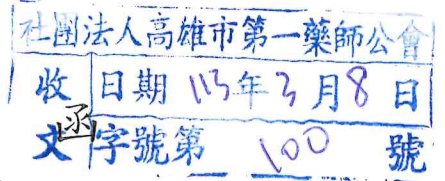 社團法人高雄市第一藥師公會
收 日期 113年3月8日
文 函 字號第 100 號